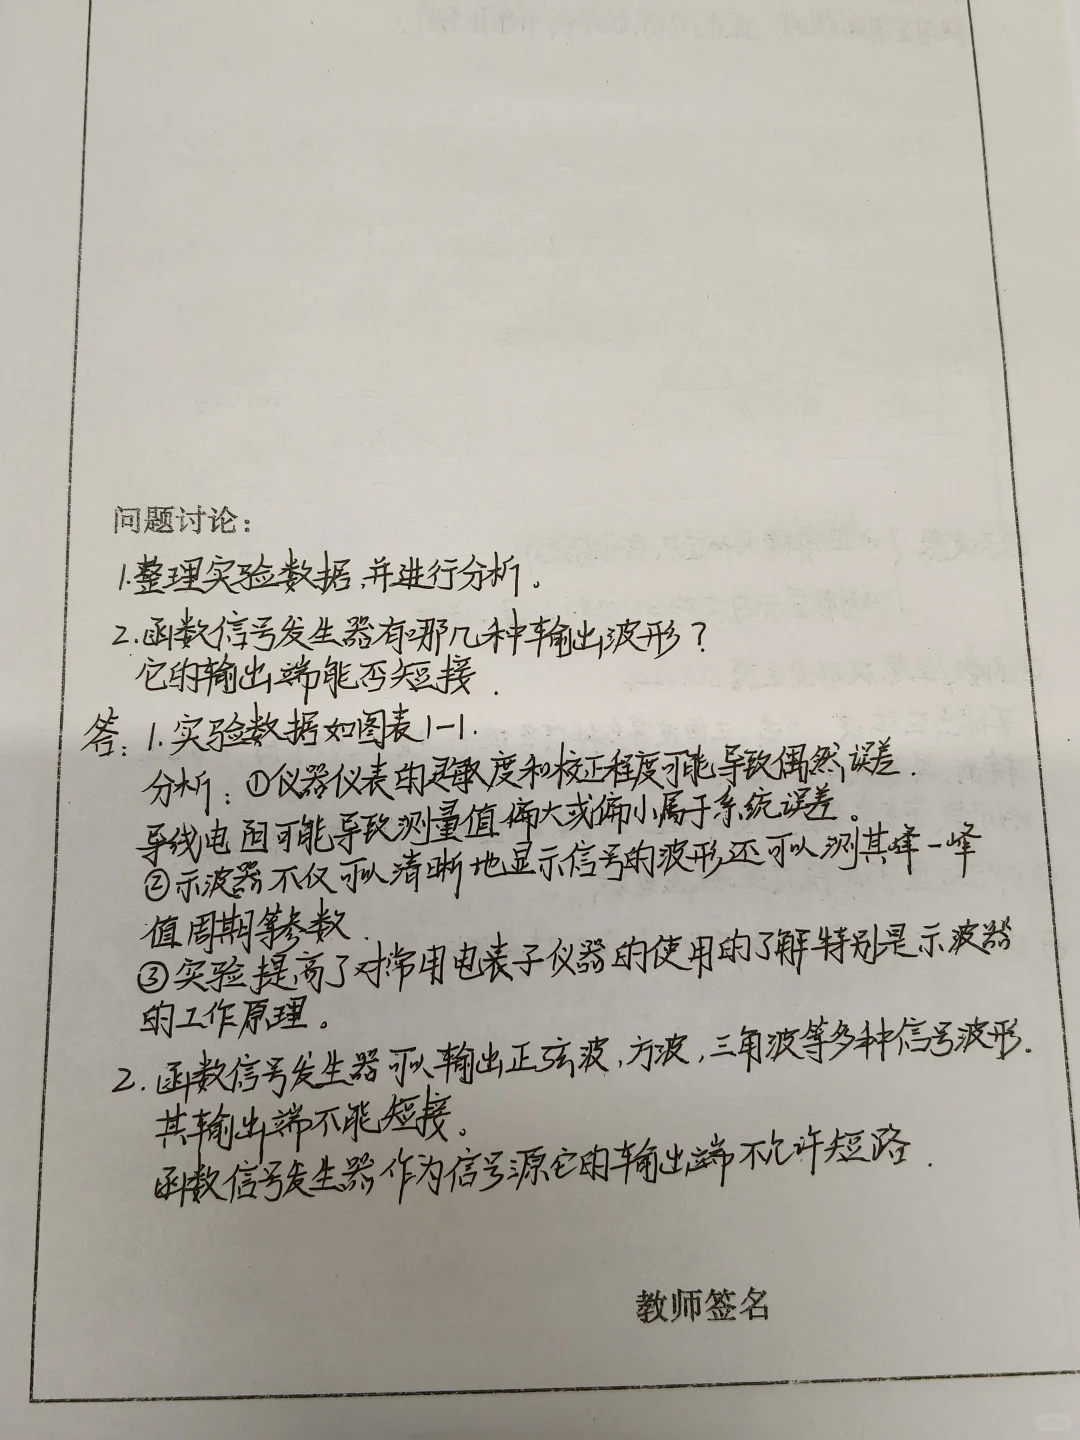 问题讨论：
1.整理实验数据,并进行分析。
2.函数信号发生器有哪几种输出波形？
它的输出端能否短接.
答：1.实验数据如图表1-1.
分析：①仪器仪表的灵敏度和校正程度可能导致偶然误差.
导线电阻可能导致测量值偏大或偏小属于系统误差。
②示波器不仅可以清晰地显示信号的波形还可以测其峰-峰
值周期等参数.
③实验提高了对常用电表子仪器的使用的了解特别是示波器
的工作原理。
2.函数信号发生器可以输出正弦波,方波,三角波等多种信号波形.
其输出端不能短接。
函数信号发生器作为信号源它的输出端不允许短路.
教师签名